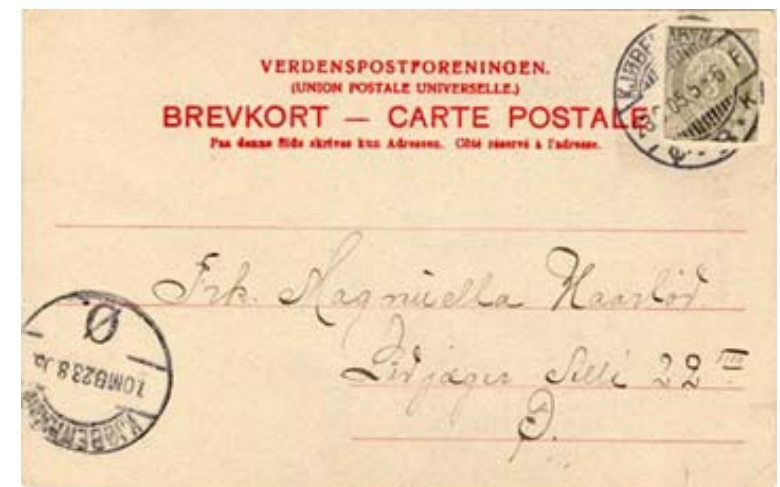 VERDENSPOSTFORENINGEN.
(UNION POSTALE UNIVERSELLE.)
BREVKORT — CARTE POSTALE
Paa denne Side skrives kun Adressen. Côté réservé à l'adresse.
Frk. Magnuella Haarlöv.
Livjæger Allé 22 III
Ø.
Ø
1.OMB